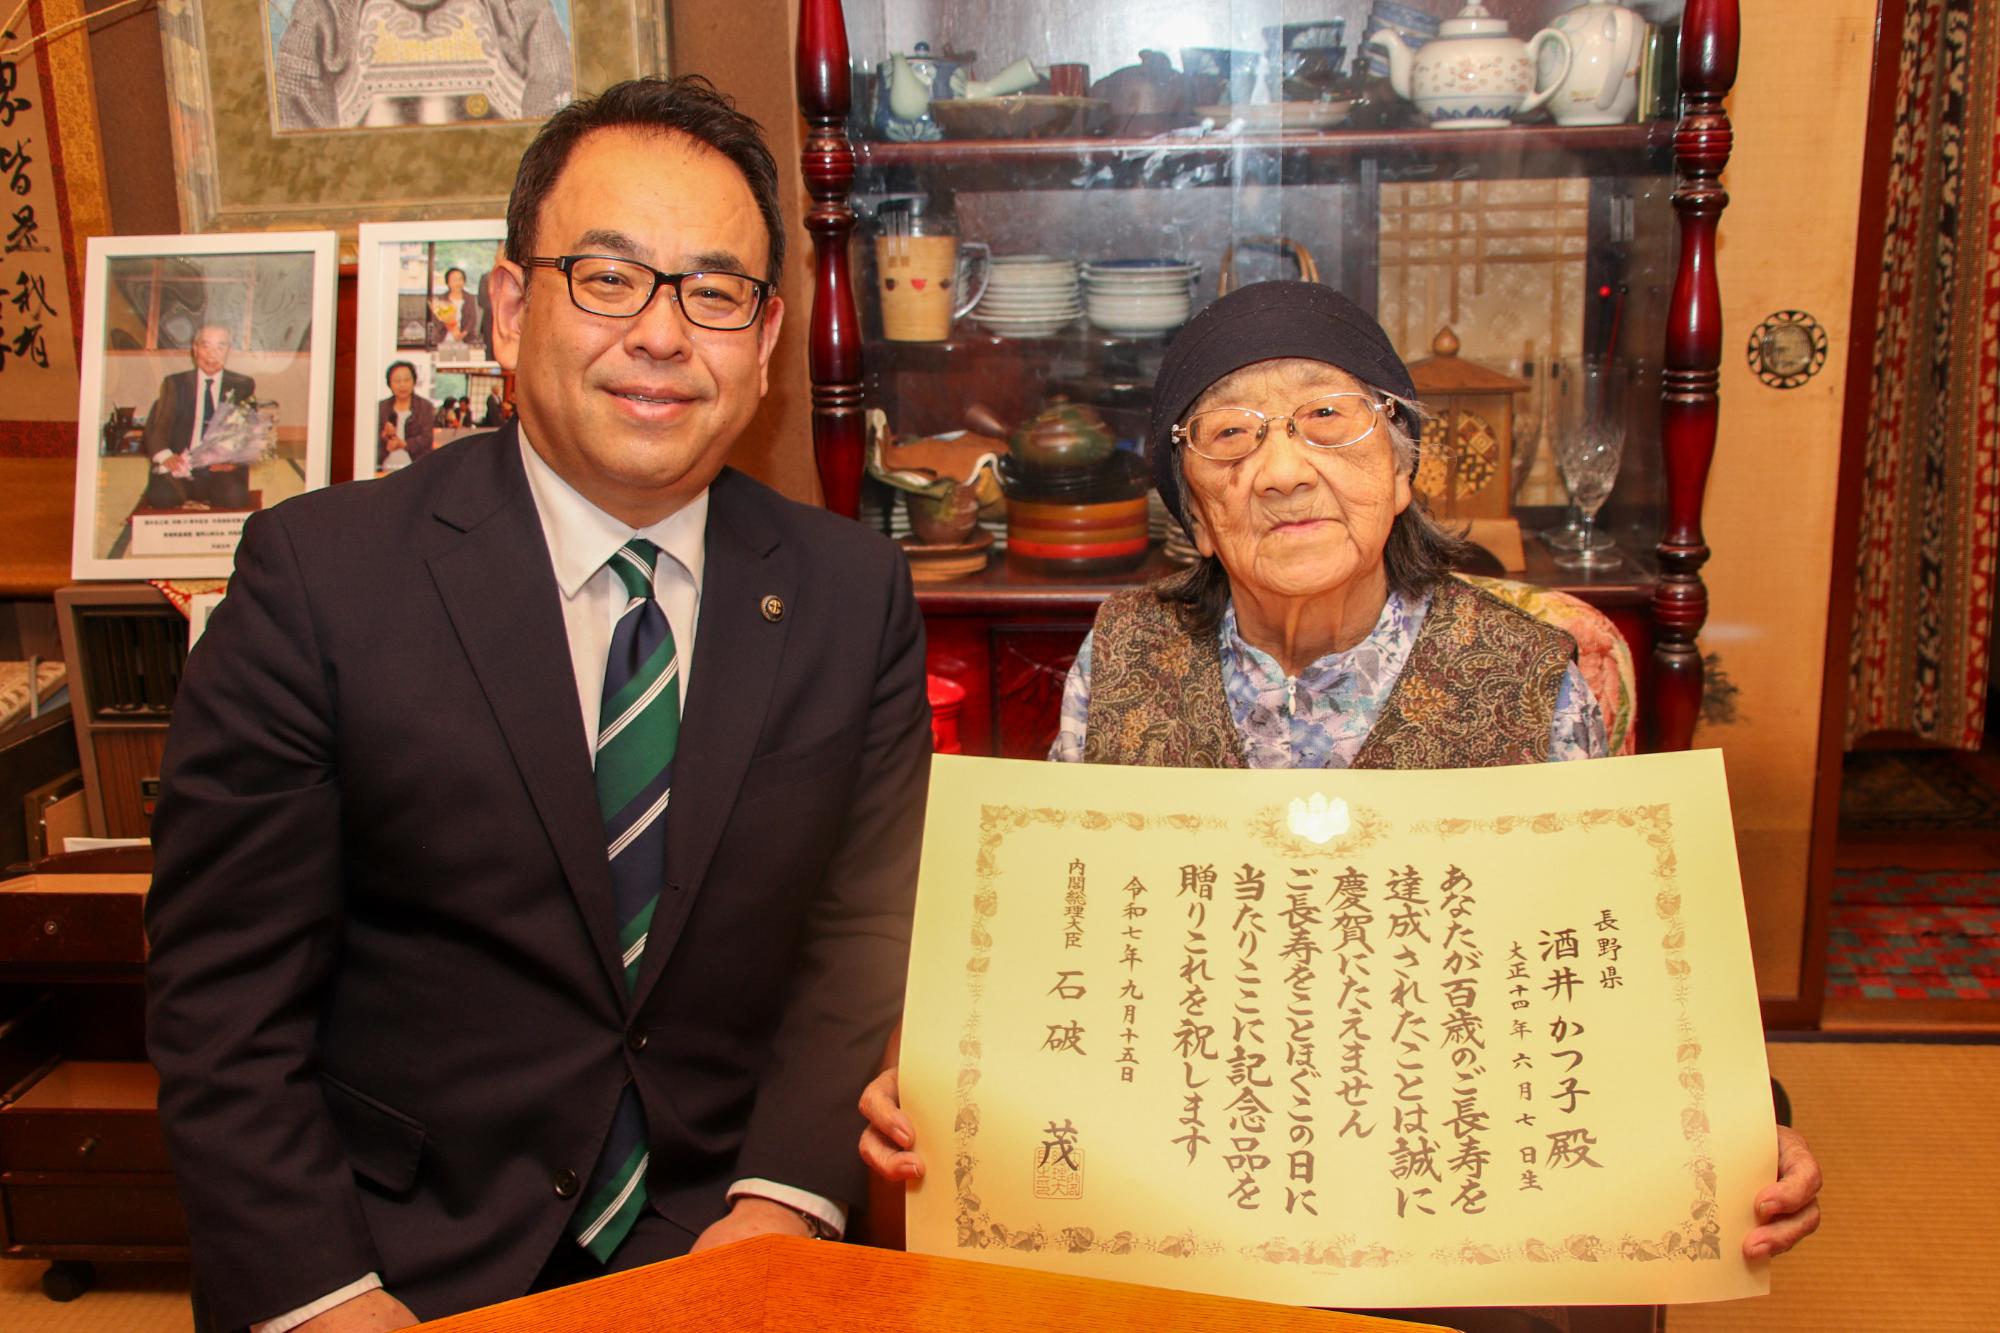 長野県
酒井かつ子殿
大正十四年六月七日生
あなたが百歳のご長寿を
達成されたことは誠に
慶賀にたえません
ご長寿をことほぐこの日に
当たりここに記念品を
贈りこれを祝します
令和七年九月十五日
内閣総理大臣 石破 茂
皆是我有